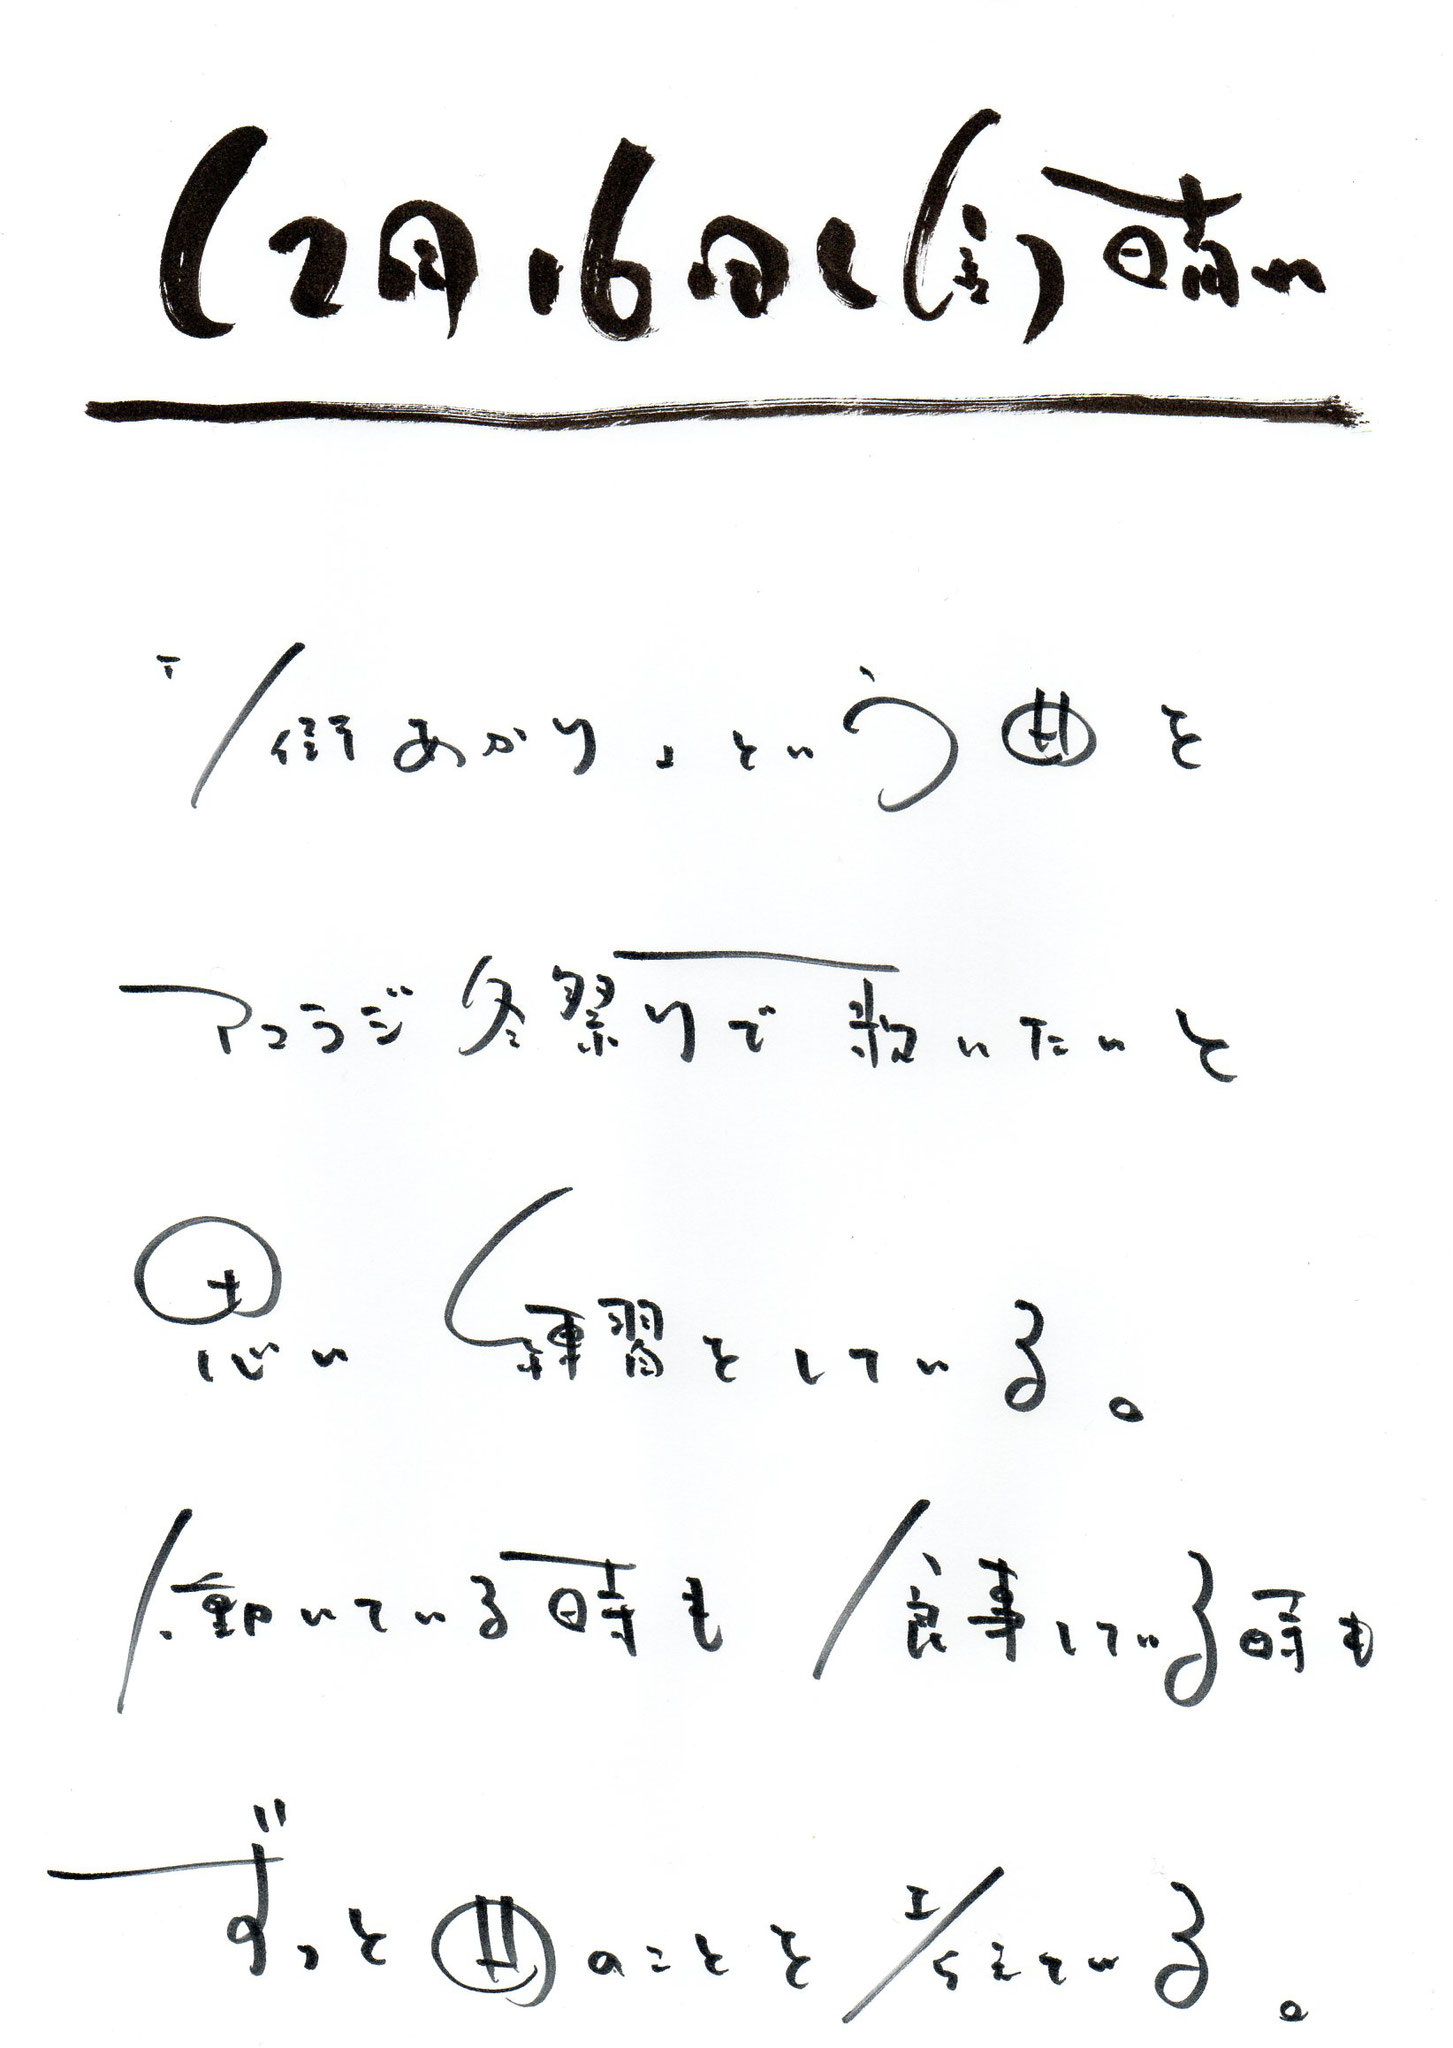 12月16日(金)晴れ
「街あかり」という曲を
アコラジ冬祭りで歌いたいと
思い 練習をしている。
働いている時も 食事している時も
ずっと曲のことを考えている。